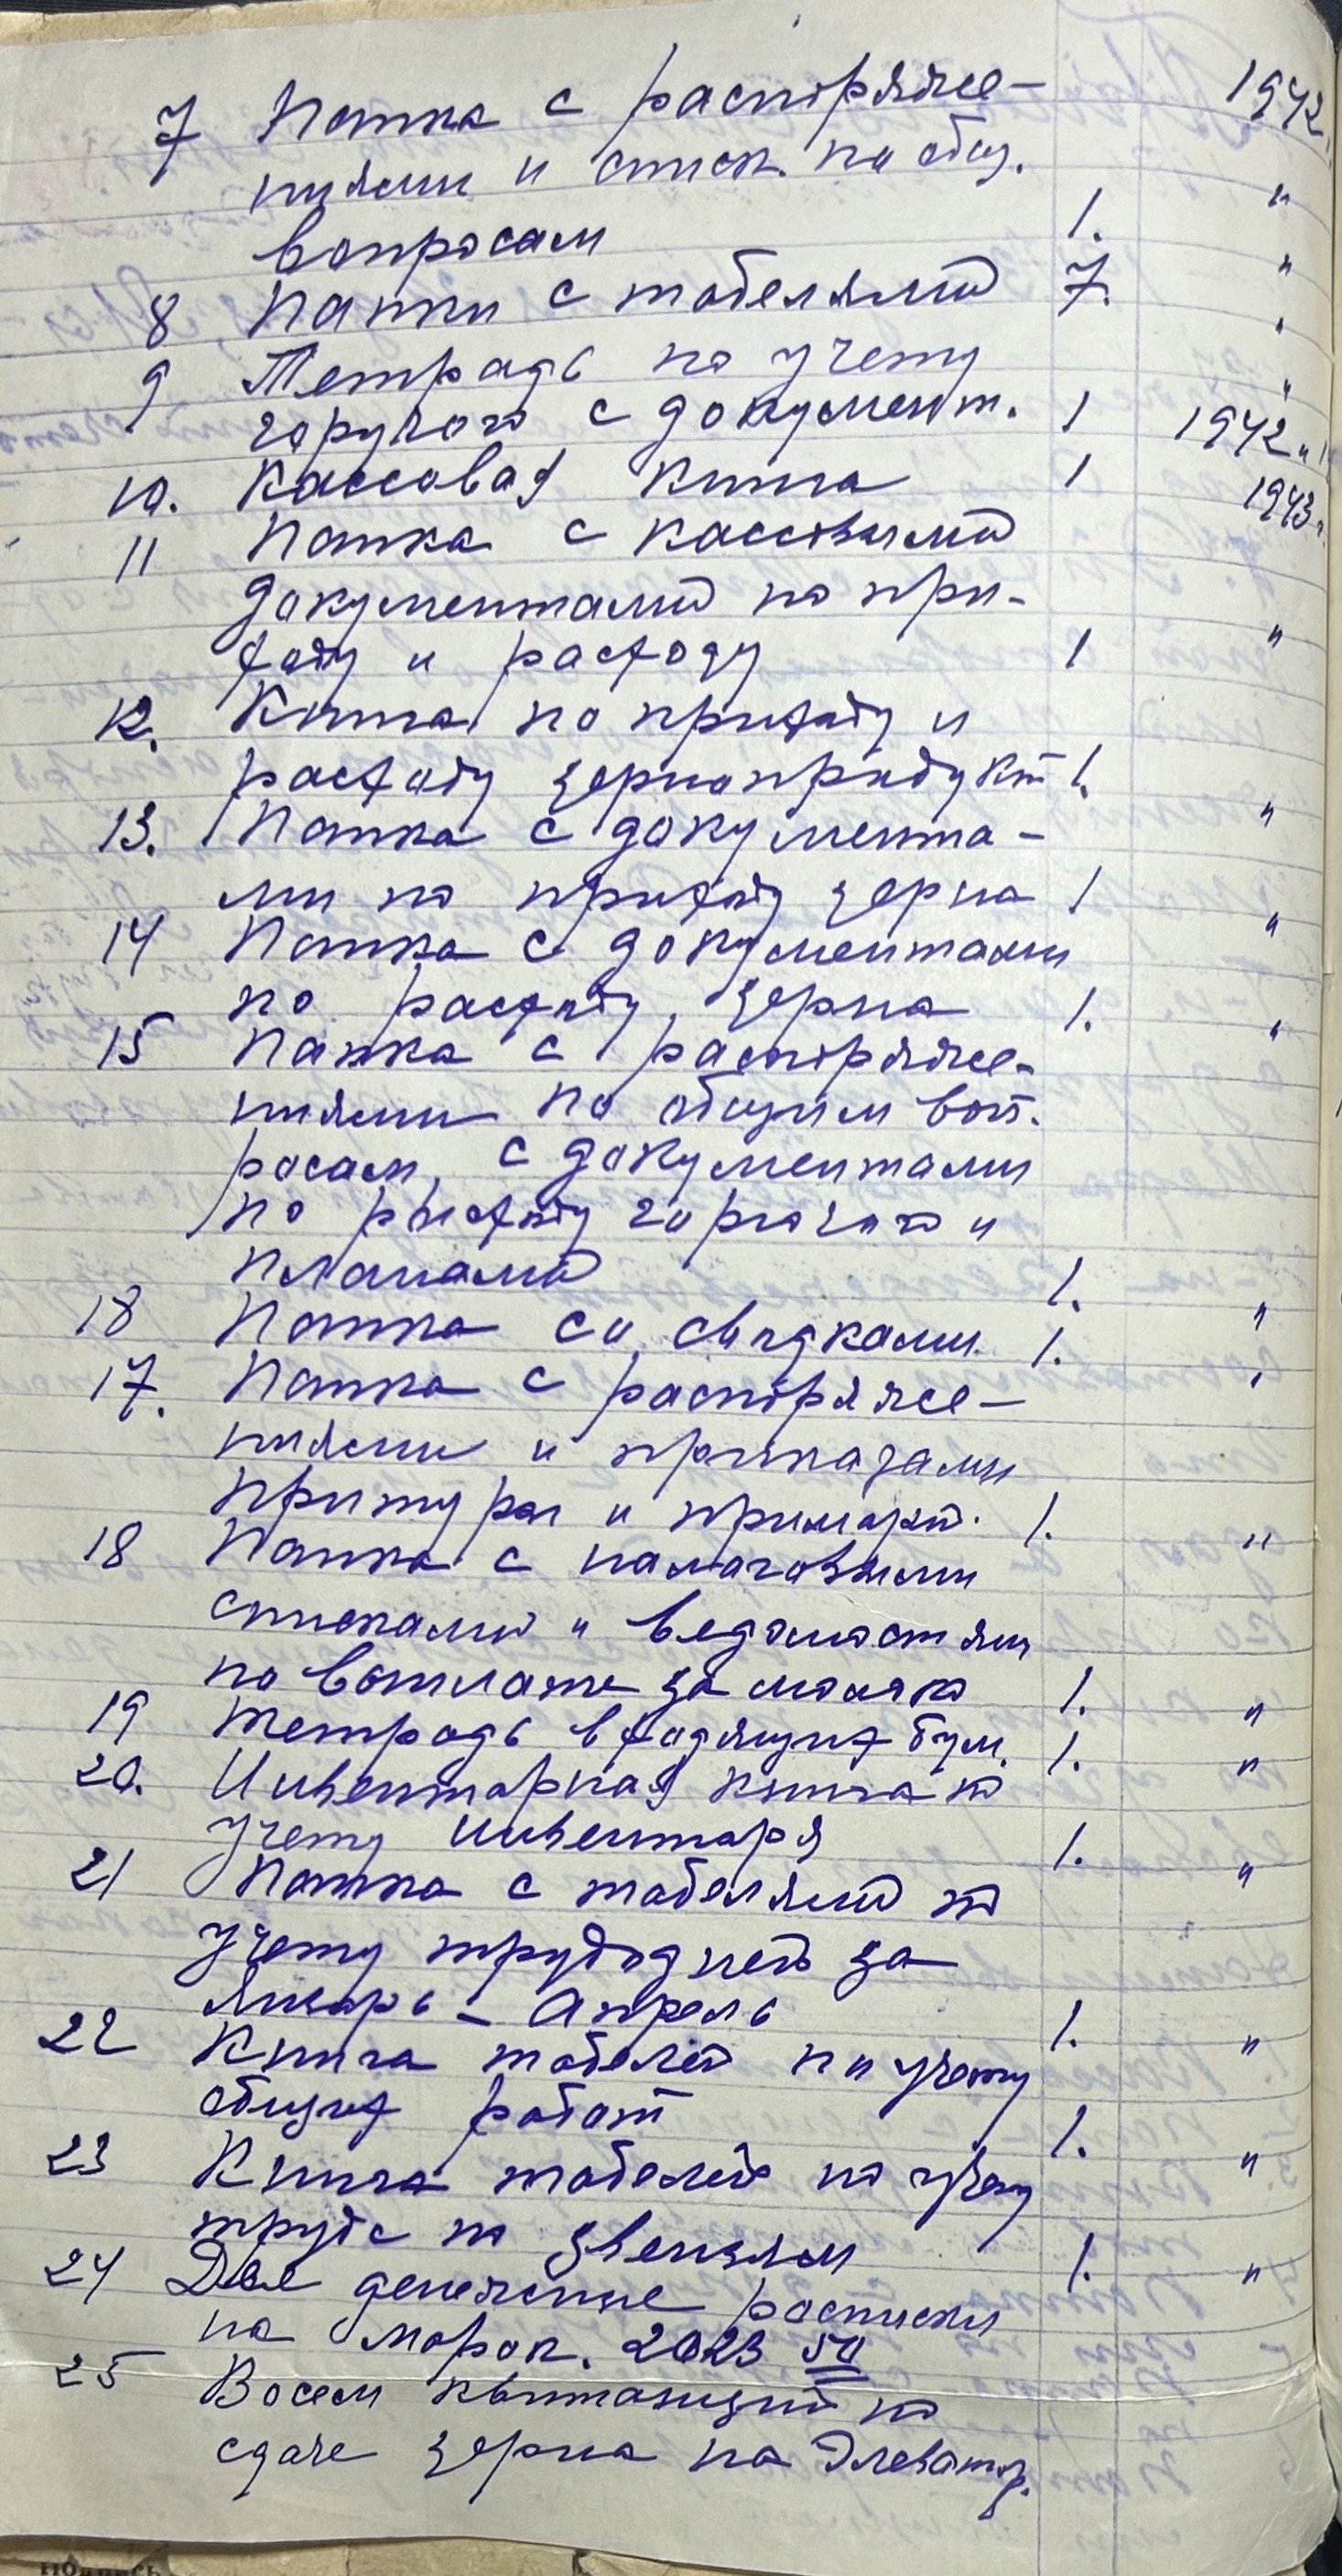 7 Папка с распоряже- 1942
ниями и списк. по общ. "
вопросам 1. "
8 Папки с табелями 7. "
9 Тетрадь по учету "
горучого с документ. 1 1942 и
10. Кассовая книга 1 1943 г.
11 Папка с кассовыми
документами по при-
ходу и расходу 1 "
12. Книга по приходу и
расходу зернопродукт 1. "
13. Папка с документа-
ми по приходу зерна 1 "
14 Папка с документами
по расходу зерна 1. "
15 Папка с распоряже-
ниями по общим воп.
росам, с документами
по расходу горючого и
планами 1. "
18 Папка со сводками 1. "
17. Папка с распоряже-
ниями и приказами
притуры и примарий. 1. "
18 Папка с налоговыми
списками и ведомостям
по выплате за молоко 1. "
19 Тетрадь входящих бум. 1. "
20. Инвентарная книга по
учету инвентаря 1. "
21 Папка с табелями по
учету трудодней за
Январь - Апрель 1. "
22 Книга табелей по учету
общих работ 1. "
23 Книга табелей по учету
труда по звеньям 1. "
24 Две денежные расписки
на марок. 2023 50
25 Восем квитанций по
сдаче зерна на Элеватор.